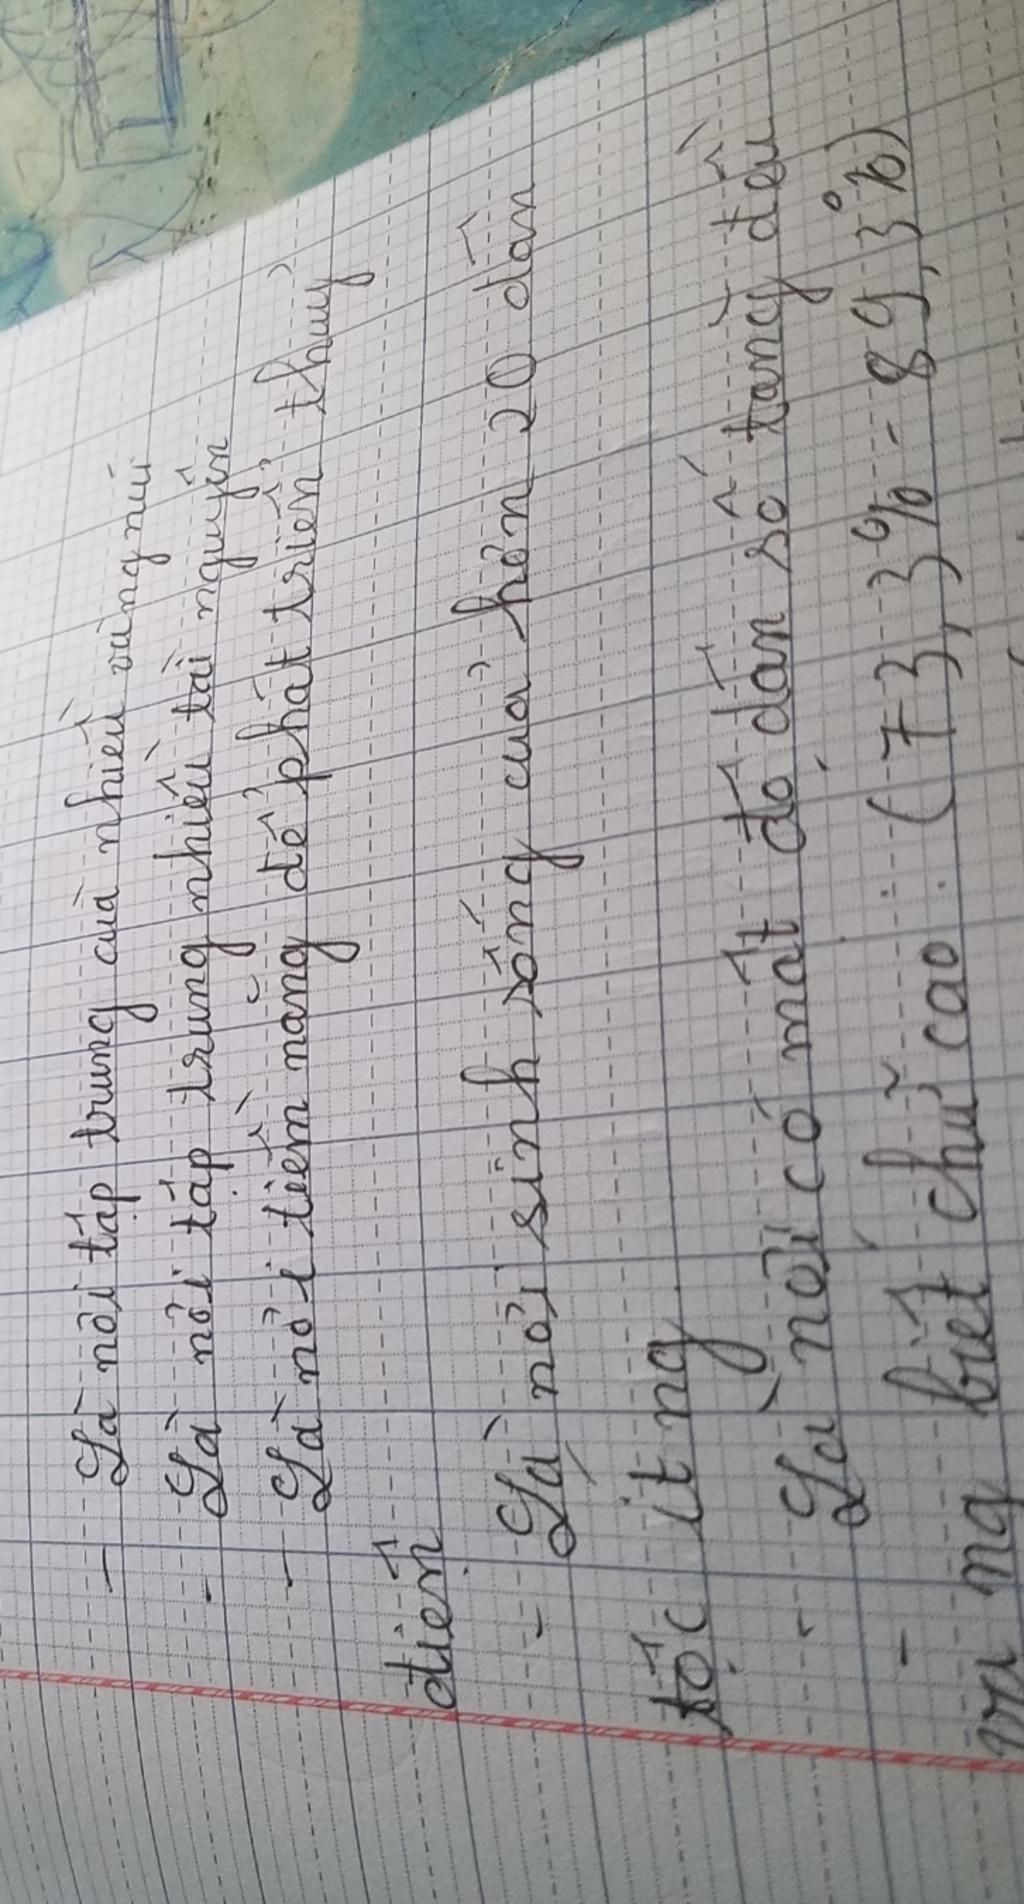 - Là nơi tập trung của nhiều vùng núi
- Là nơi tập trung nhiều tài nguyên
- Là nơi tiềm năng để phát triển thuỷ
điện
- Là nơi sinh sống của hơn 20 dân
tộc ít ng
- Là nơi có mật độ dân số tăng đều
- ng biết chữ cao (73,3% - 89,3%)